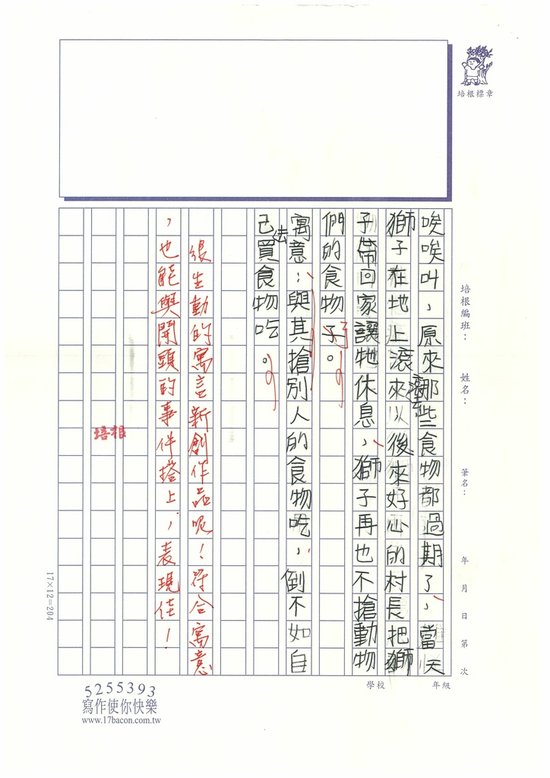 培根標章
培根編班：　姓名：　筆名：　年　月　日　第　次
學校　年級
唉唉叫，原來那些食物都過期了，當天
獅子在地上滾來滾去以後來好心的村長把獅
子帶回家讓牠休息，獅子再也不搶動物
們的食物了。
寓意：與其搶別人的食物吃，倒不如自
己去買食物吃。
很生動的寓言新創作品呢！符合寓意
，也能與開頭的事件搭上，表現佳！
培根
17×12=204
5255393
寫作使你快樂
www.17bacon.com.tw